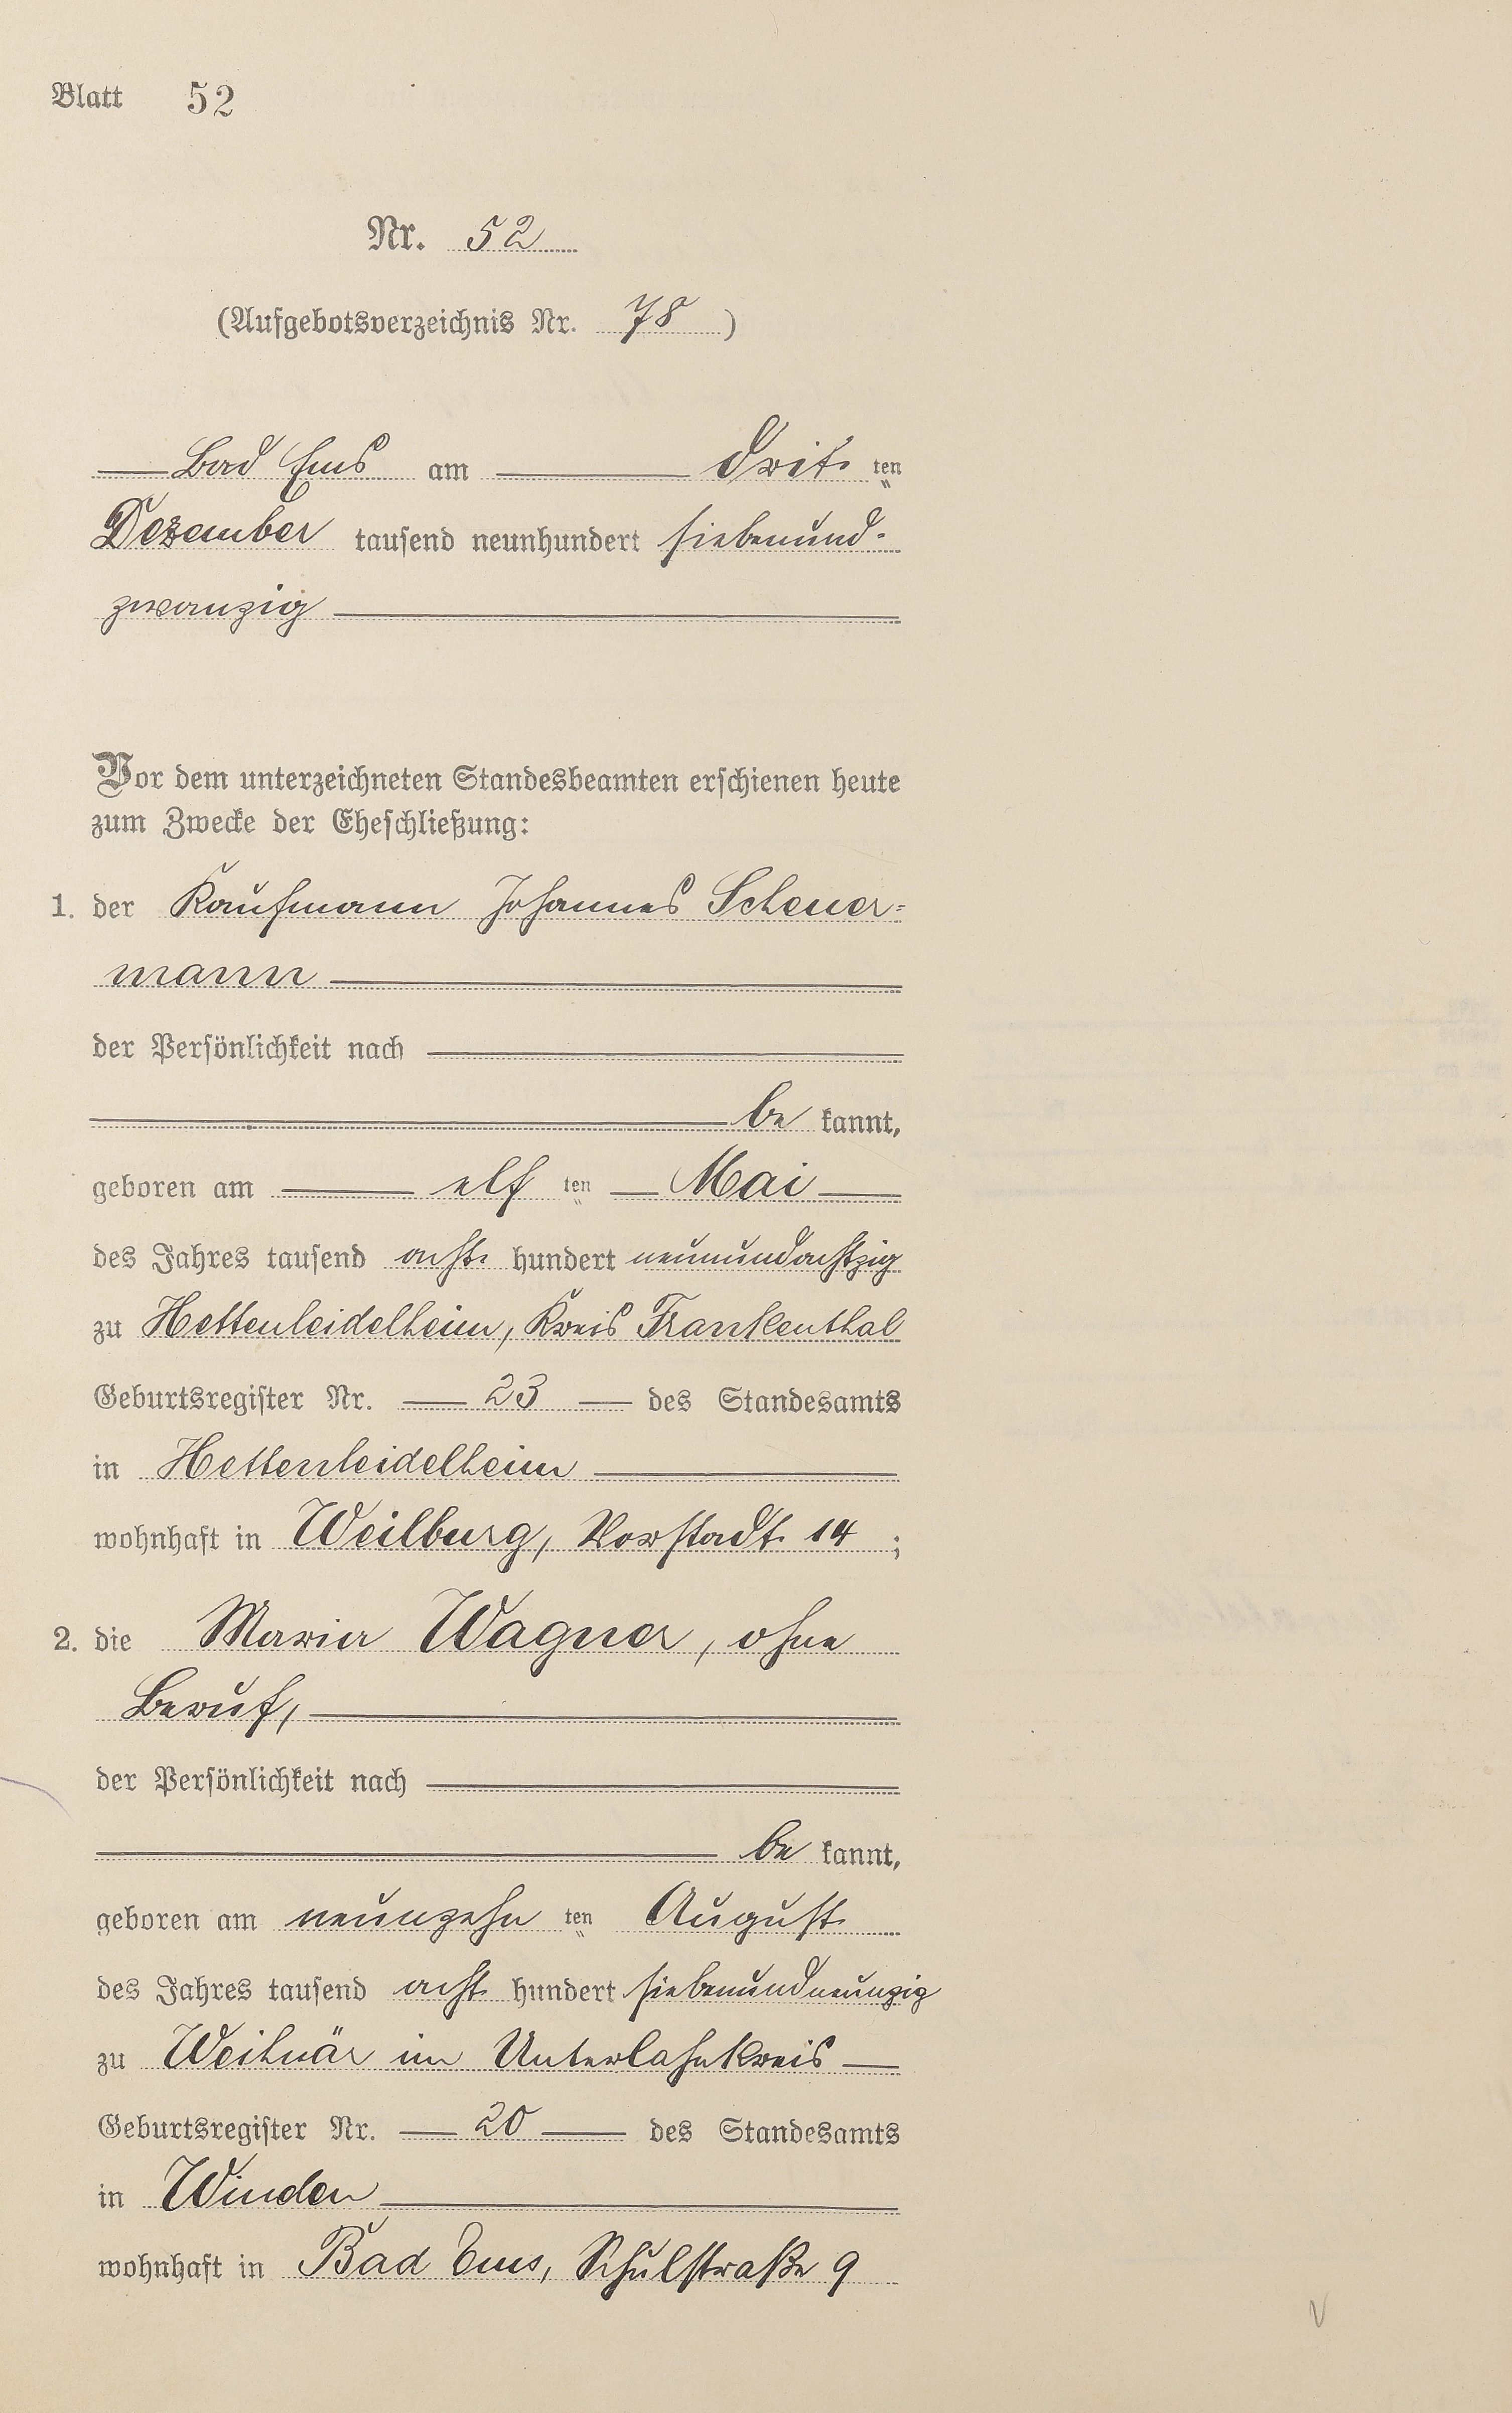 Blatt 52
Nr. 52
(Aufgebotsverzeichnis Nr. 78)
Bad Ems am drit ten
Dezember tausend neunhundert siebenund-
zwanzig
Vor dem unterzeichneten Standesbeamten erschienen heute
zum Zwecke der Eheschließung:
1. der Kaufmann Johannes Scheuer=
mann
der Persönlichkeit nach
be kannt,
geboren am elf ten Mai
des Jahres tausend acht hundert neunundachtzig
zu Hettenleidelheim, Kreis Frankenthal
Geburtsregister Nr. 23 des Standesamts
in Hettenleidelheim
wohnhaft in Weilburg, Vorstadt 14 ;
2. die Maria Wagner, ohne
Beruf,
der Persönlichkeit nach
be kannt,
geboren am neunzehn ten August
des Jahres tausend acht hundert siebenundneunzig
zu Weinähr im Unterlahnkreis
Geburtsregister Nr. 20 des Standesamts
in Winden
wohnhaft in Bad Ems, Schulstraße 9